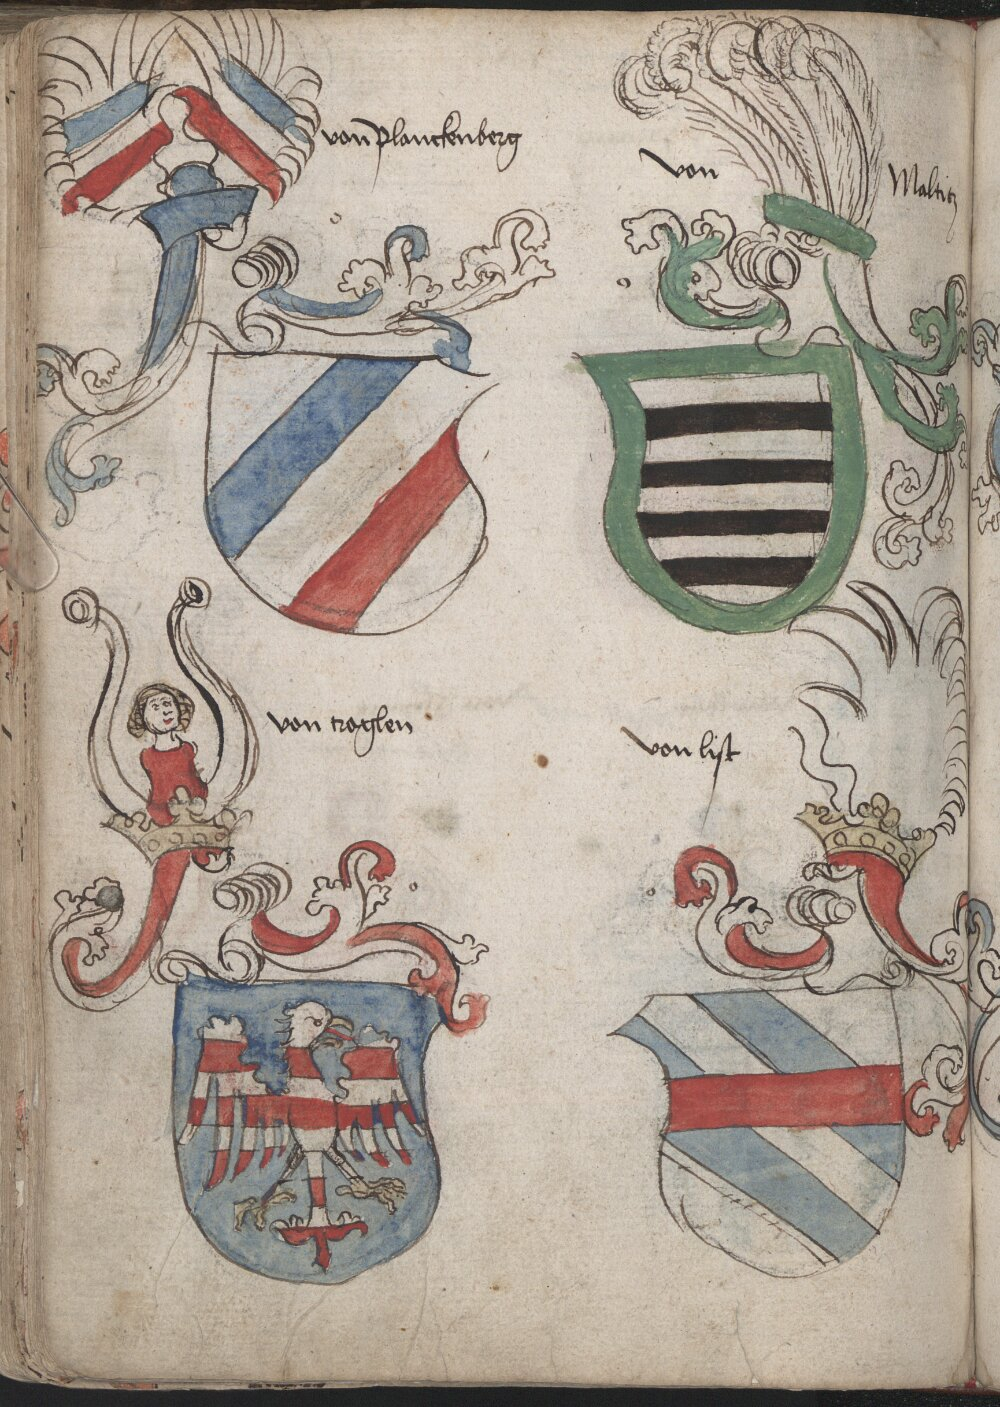 von Planckenberg
von Maltitz
von troglen
von list